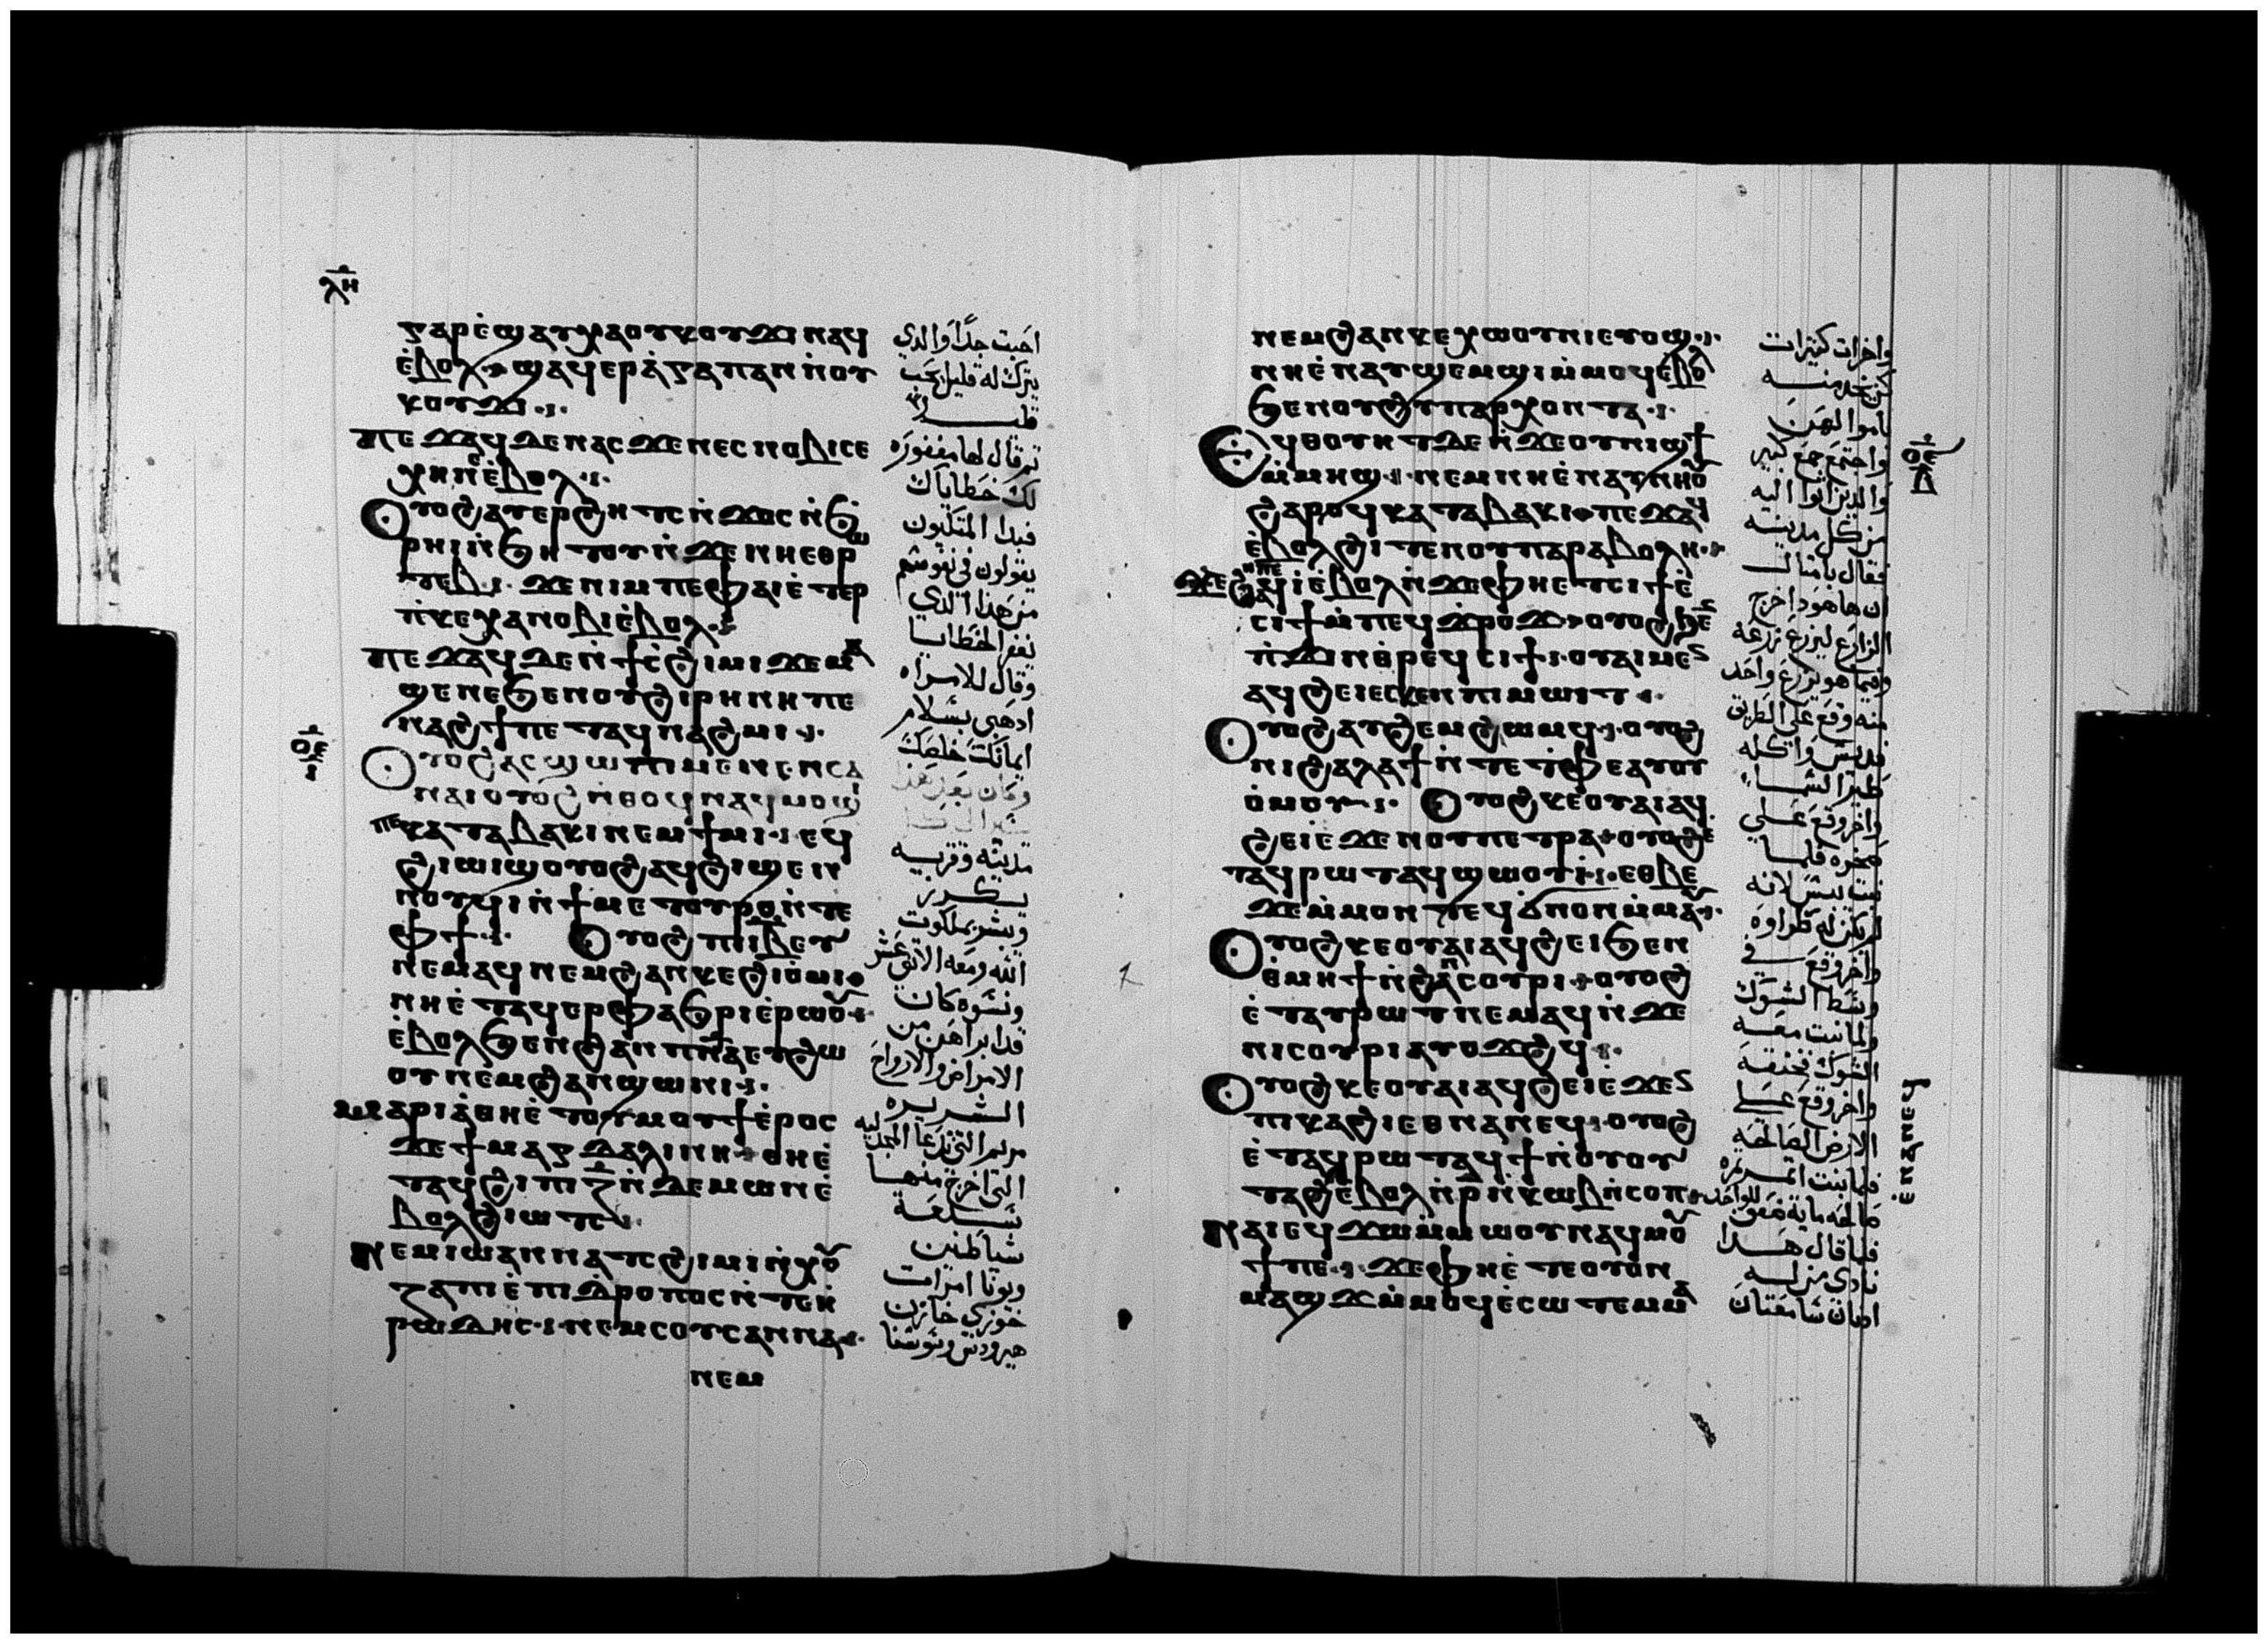 ⲗⲏ
ⲅⲁⲣ ⲉ̀ϣⲁⲩⲭⲁ ⲟⲩⲕⲟⲩϫⲓ ⲛⲁϥ
ⲉ̀ⲃⲟⲗ ϣⲁϥⲉⲣⲁ̀ⲅⲁⲡⲁⲛ ⲛ̀ⲟⲩ
ⲕⲟⲩϫⲓ
ⲡⲉϫⲁϥ ⲇⲉ ⲛⲁⲥ ϫⲉ ⲛⲉⲥⲛⲟⲃⲓ ⲥⲉ
ⲭⲏ ⲛⲉ ⲉ̀ⲃⲟⲗ
ⲟⲩⲟϩ ⲁⲩⲉⲣϩⲏⲧⲥ ⲛ̀ϫⲟⲥ ⲛ̀ϧ
ⲣⲏⲓ ⲛ̀ϧⲏⲧⲟⲩ ⲛ̀ϫⲉ ⲛⲏⲉⲑⲣⲱ
ⲧⲉⲃ ϫⲉ ⲛⲓⲙ ⲡⲉ ⲫⲁⲓ ⲉ̀ⲧⲉⲣ
ⲡ̀ⲕⲉⲭⲁ ⲛⲟⲃⲓ ⲉ̀ⲃⲟⲗ
ⲡⲉϫⲁϥ ⲇⲉ ⲛ̀ϯⲥ̀ϩⲓⲙⲓ ϫⲉ ⲙⲁ
ϣⲉ ⲛⲉ ϧⲉⲛ ⲟⲩϩⲓⲣⲏⲛⲏ ⲡⲉ
ⲛⲁϩϯ ⲡⲉⲧⲁϥⲛⲁϩⲙⲓ
ⲟⲉ
ⲟⲩⲟϩ ⲁⲥϣⲱⲡⲓ ⲙⲉⲛⲉⲛⲥⲁ
ⲛⲁⲓ ⲟⲩⲟϩ ⲛ̀ⲑⲟϥ ⲛⲁϥⲙⲟϣⲓ
ⲡⲉ ⲕⲁⲧⲁ ⲃⲁⲕⲓ ⲛⲉⲙ ϯⲙⲓ ⲉϥ
ϩⲓⲱⲓϣ ⲟⲩⲟϩ ⲁϥϩⲓϣⲉⲛ
ⲛⲟⲩϥⲓ ⲛ̀ϯⲙⲉⲧⲟⲩⲣⲟ ⲛ̀ⲧⲉ
ⲫϯ ⲟⲩⲟϩ ⲡⲓⲓⲃ ⲉⲩ
ⲛⲉⲙⲁϥ ⲛⲉⲙ ϩⲁⲛⲕⲉϩⲓⲟ̀ⲙⲓ
ⲛⲏⲉ̀ⲧⲁϥⲉⲣⲫⲁϧⲣⲓ ⲉ̀ⲣⲱⲟⲩ
ⲉ̀ⲃⲟⲗ ϧⲉⲛ ϩⲁⲛⲡⲛⲁ ⲉⲩϩⲱ
ⲟⲩ ⲛⲉⲙ ϩⲁⲛϣⲱⲛⲓ
ⲙⲁⲣⲓⲁ̀ ⲑⲏⲉ̀ⲧⲟⲩⲙⲟⲩϯ ⲉ̀ⲣⲟⲥ
ϫⲉ ϯⲙⲁⲅⲇⲁⲗⲓⲛⲏ ⲑⲏⲉ̀
ⲧⲁϥϩⲓ ⲡⲓⲍ ⲛ̀ⲇⲉⲙⲱⲛ ⲉ̀
ⲃⲟⲗ ϩⲓⲱⲧⲥ
ⲛⲉⲙ ⲓⲱⲁⲛⲛⲁ ⲧⲥϩⲓⲙⲓ ⲛ̀ⲭⲟⲩ
ⲍⲁ ⲡⲓⲉ̀ⲡⲓⲇ̀ⲣⲟⲡⲟⲥ ⲛ̀ⲧⲉ ⲏ̀
ⲣⲱⲇⲏⲥ ⲛⲉⲙ ⲥⲟⲩⲥⲁⲛⲛⲁ
ⲛⲉⲙ
احبت جدًا والذي
يترك له قليل يحب
قليلا
ثم قال لها مغفوره
لك خطاياك
فبدا المتكيون
يقولون في نفوسهم
من هذا الذي
يغفر الخطايا
وقال للامراه
اذهبي بسلام
ايمانك خلصك
وكان بعد هذا
مدينه وقريه
يكرز
ويبشر بملكوت
الله ومعه الاثني عشر
ونسوه كان
قد ابراهن من
الامراض والارواح
الشريره
مريم التي تدعا المجدليه
التي اخرج منها
سبعه
شياطين
ويونا امرات
خوزي خازن
هيرودس وسوسنا
ⲛⲉⲙ ϩⲁⲛⲕⲉⲭⲱⲟⲩⲛⲓ ⲉⲩⲟϣ
ⲛⲏⲉ̀ⲛⲁⲩϣⲉⲙϣⲓ ⲙ̀ⲙⲟϥ ⲉ̀ⲃⲟⲗ
ϧⲉⲛ ⲟⲩϩⲩⲡⲁⲣⲭⲟⲛⲧⲁ
ⲟⲉ
ⲇ
ⲉϥⲑⲟⲩⲏⲧ ⲇⲉ ⲛ̀ϫⲉ ⲟⲩⲛⲓϣϯ
ⲙ̀ⲙⲏϣ ⲛⲉⲙ ⲛⲏⲉ̀ⲛⲁⲩⲛⲏⲟⲩ
ϩⲁⲣⲟϥ ⲕⲁⲧⲁ ⲃⲁⲕⲓ ⲡⲉϫⲁϥ
ⲉ̀ⲃⲟⲗϩⲓⲧⲉⲛ ⲟⲩⲡⲁⲣⲁⲃⲟⲗⲏ
ϫⲉ ϩⲏⲡⲡⲉ ⲁϥⲓ̀ ⲉ̀ⲃⲟⲗ ⲛ̀ϫⲉ ⲫⲏⲉⲧⲥⲓϯ ⲉ̀
ⲥⲓϯ ⲙ̀ⲡⲉϥϫ̀ⲣⲟϫ ⲟⲩⲟϩ ϧⲉⲛ
ⲡ̀ϫⲓⲛⲑ̀ⲣⲉϥⲥⲓϯ ⲟⲩⲁⲓ ⲙⲉⲛ
ⲁϥϩⲉⲓ ⲉⲥⲕⲉⲛ ⲡⲓⲙⲱⲓⲧ
ⲟⲩⲟϩ ⲁⲩϩⲉⲙϩⲱⲙϥ ⲟⲩⲟϩ
ⲛⲓϩⲁⲗⲁϯ ⲛ̀ⲧⲉ ⲧ̀ⲫⲉ ⲁⲩⲟⲩ
ⲟ̀ⲙⲟⲩ ⲟⲩⲟϩ ⲕⲉⲟⲩⲁⲓ ⲁϥ
ϩⲉⲓ ⲉ̀ϫⲉⲛ ⲟⲩⲡⲉⲧⲣⲁ ⲟⲩⲟϩ ⲉ̀
ⲧⲁϥⲣⲱⲧ ⲁϥϣⲱⲟⲩⲓ̀ ⲉⲑⲃⲉ
ϫⲉ ⲙ̀ⲙⲟⲛⲧⲉϥ ϭⲛⲟⲛ ⲙ̀ⲙⲁⲩ
ⲟⲩⲟϩ ⲕⲉⲟⲩⲁⲓ ⲁϥϩⲉⲓ ϧⲉⲛ
ⲑ̀ⲙⲏϯ ⲛ̀ϩⲁⲛⲥⲟⲩⲣⲓ ⲟⲩⲟϩ
ⲉ̀ⲧⲁⲩⲣⲱⲧ ⲛⲉⲙⲁϥ ⲛ̀ϫⲉ
ⲛⲓⲥⲟⲩⲣⲓ ⲁⲩⲟϫϩϥ
ⲟⲩⲟϩ ⲕⲉⲟⲩⲁⲓ ⲁϥϩⲉⲓ ⲉ̀ϫⲉⲛ
ⲡⲓⲕⲁϩⲓ ⲉⲑⲛⲁⲛⲉϥ ⲟⲩⲟϩ
ⲉ̀ⲧⲁϥⲣⲱⲧ ⲁϥϯ ⲛ̀ⲟⲩⲟⲩ
ⲧⲁϩ ⲉ̀ⲃⲟⲗ ⲛ̀ⲣ̀ ⲛ̀ⲕⲱⲃ ⲛ̀ⲥⲟⲡ
ⲛⲁⲓ ⲉϥϫⲱ ⲙ̀ⲙⲱⲟⲩ ⲛⲁϥⲙⲟⲩ
ϯ ⲡⲉ ϫⲉ ⲫⲏⲉ̀ⲧⲉ ⲟⲩⲟⲛ
ⲙⲁϣϫ ⲙ̀ⲙⲟϥ ⲉ̀ⲥⲱⲧⲉⲙ ⲙⲁ
ⲉ̀ⲛⲁⲛⲉϥ
واخرات كثيرات
كن يخدمنه
باموالهن
واجتمع جمع كبير
والذين اتوا اليه
من كل مدينه
فقال بامثال
ان ها هوذا خرج
الزارع ليزرع زرعه
وفيما هو يزرع واحد
منه وقع على الطريق
فديس واكله
طير السماء
واخر وقع على
صخره فلما
نبت يبس لانه
لم يكن له طراوه
واخر وقع في
وسط الشوك
ولما نبت معه
الشوك تخنقه
واخر وقع على
الارض الصالحه
فلما نبت اثمر ثمره
صالحه مايه ضعف للواحد
فلما قال هذا
نادى من له
اذنان سامعتان